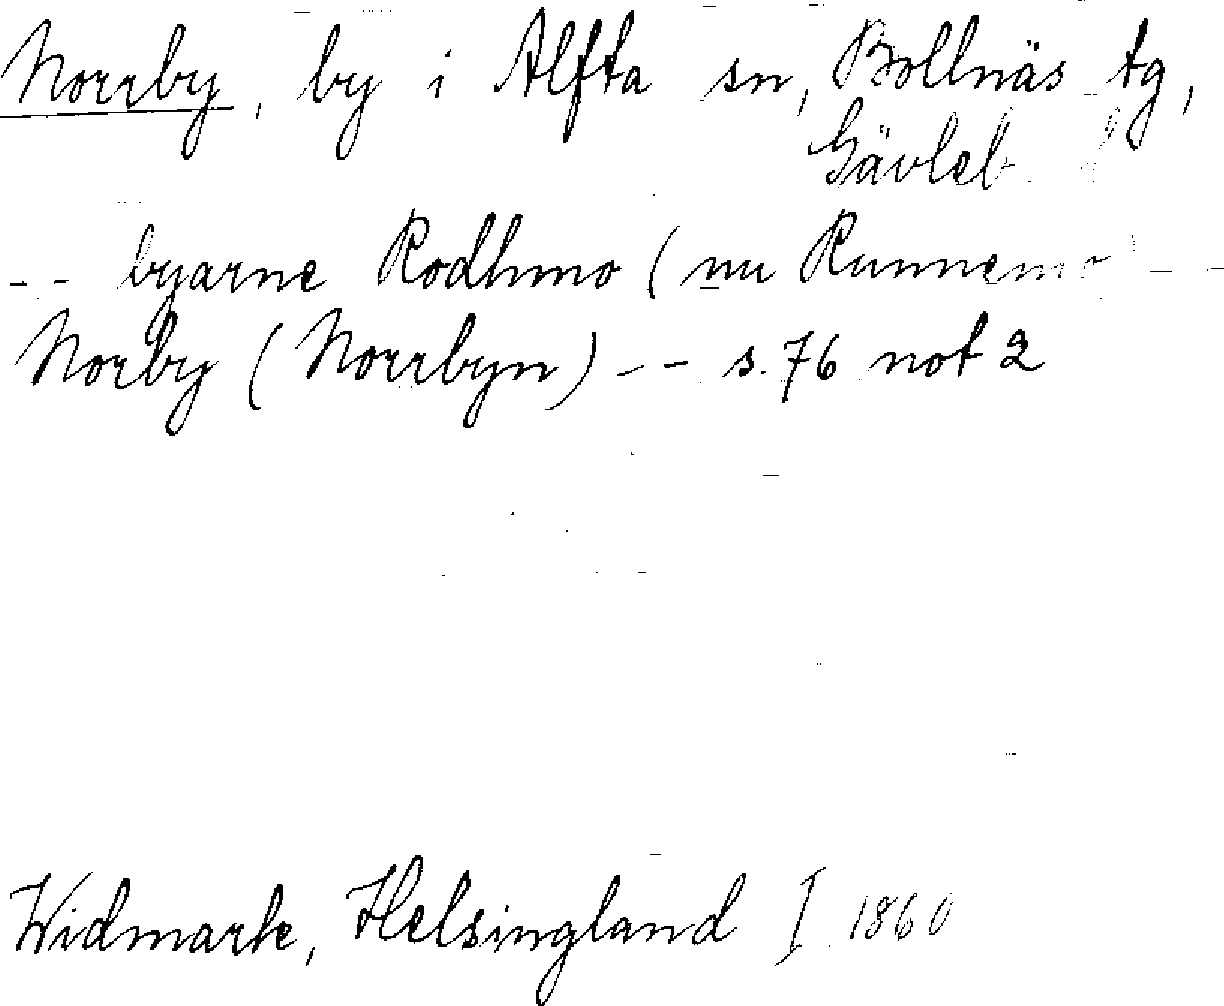 Norrby, by i Alfta sn, Bollnäs tg,
Gävleb. l
-- byarne Rodhmo (nu Runnemo) --
Norby (Norrbyn) -- s. 76 not 2
Widmark, Helsingland I 1860